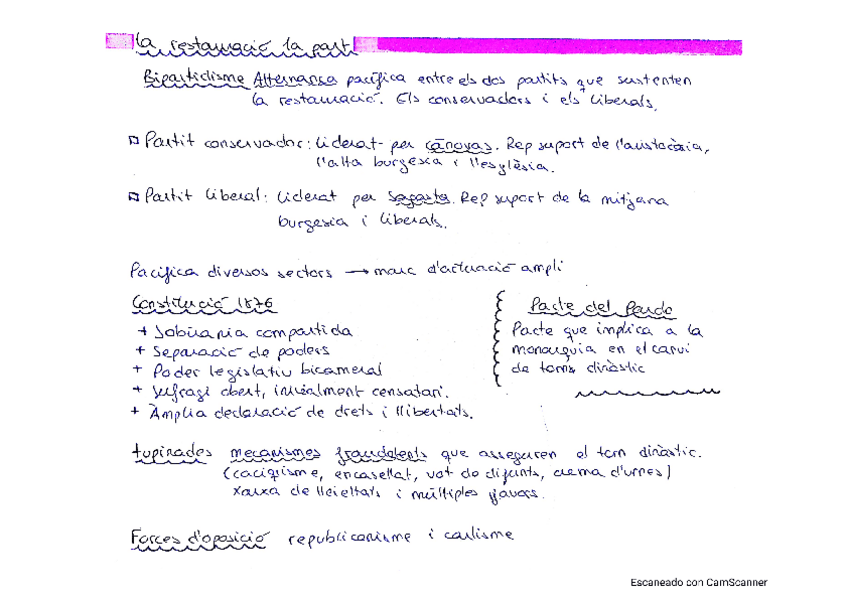 la restauració 1a part
Bipartidisme Alternança pacífica entre els dos partits que sustenten
la restauració. Els conservadors i els liberals.
Partit conservador: Liderat per cánovas. Rep suport de l'aristocràsia,
l'alta burgesia i l'esglèsia.
Partit liberal: Liderat per Sagasta. Rep suport de la mitjana
burgesia i liberals.
Pacífica diversos sectors → marc d'actuació ampli
Constitució 1876
+ Sobirania compartida
+ Separació de poders
+ Poder legislatiu bicameral
+ Sufragi obert, inicialment censatari.
+ Àmplia declaració de drets i llibertats.
Pacte del Pardo
Pacte que implica a la
monarquia en el canvi
de torns dinàstic
tupinades mecanismes fraudelents que asseguren el torn dinàstic.
(caciquisme, encasellat, vot de difunts, crema d'urnes)
xarxa de lleieltats i múltiples favors.
Forces d'oposició republicanisme i carlisme
Escaneado con CamScanner